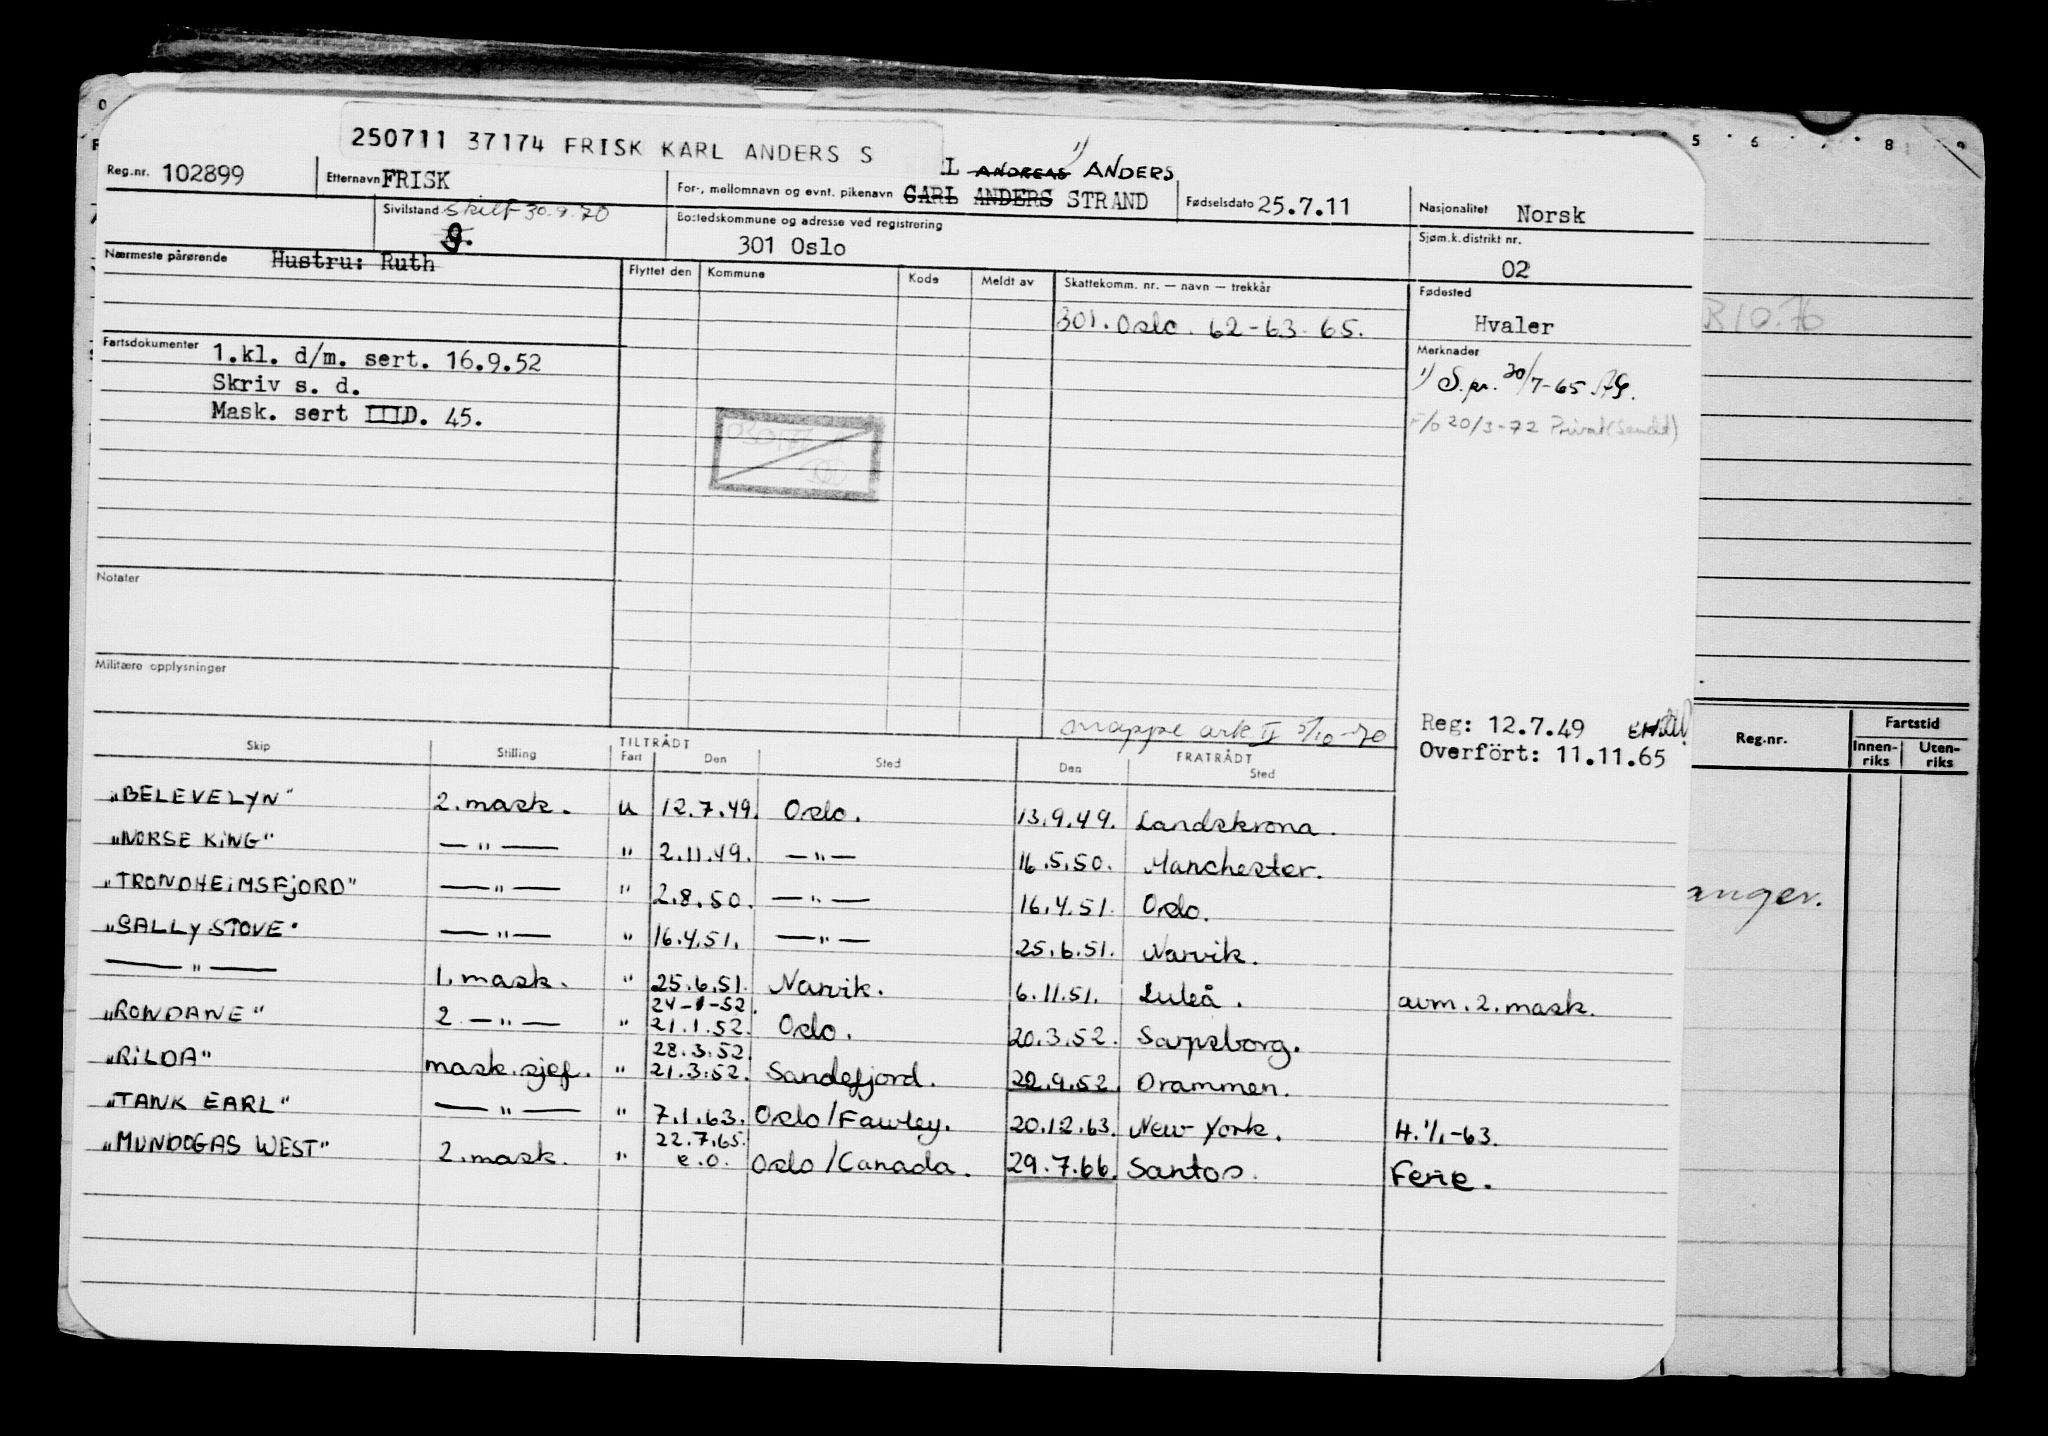 250711 37174 FRISK KARL ANDERS S
Reg.nr. 102899 Etternavn FRISK For-, mellomnavn og evnt. pikenavn L ANDREAS 1) ANDERS
CARL ANDERS STRAND Fødselsdato 25.7.11 Nasjonalitet Norsk
Sivilstand Skilt 30.9.70 Bostedskommune og adresse ved registrering Sjøm.k.distrikt nr.
g. 301 Oslo 02
Nærmeste pårørende Hustru: Ruth Flyttet den Kommune Kode Meldt av Skattekomm. nr. — navn — trekkår Fødested
301. Oslo. 62-63-65. Hvaler
Fartsdokumenter 1.kl. d/m. sert. 16.9.52 Merknader
Skriv s. d. 1) S.nr. 30/7-65.
Mask. sert IIID. 45. F/o 20/3-72 Privat (Sendt)
Notater
Militære opplysninger
mappe ark II 5/10-70 Reg: 12.7.49
Overfört: 11.11.65
Skip Stilling TILTRÅDT FRATRÅDT
Fart Den Sted Den Sted
"BELEVELYN" 2. mask. u 12.7.49. Oslo. 13.9.49. Landskrona.
"NORSE KING" — " — " 2.11.49. — " — 16.5.50. Manchester.
"TRONDHEIMSFJORD" — " — " 2.8.50. — " — 16.4.51. Oslo.
"SALLY STOVE" — " — " 16.4.51. — " — 25.6.51. Narvik.
— " — 1. mask. " 25.6.51. Narvik. 6.11.51. Luleå. avm. 2. mask.
24-1-52.
"RONDANE" 2 — " — " 21.1.52. Oslo. 20.3.52. Sarpsborg.
28.3.52.
"RILDA" mask.sjef. " 21.3.52. Sandefjord. 22.9.52. Drammen.
"TANK EARL" — " — " 7.1.63. Oslo/Fawley. 20.12.63. New York. H. 1/1-63.
22.7.65.
"MUNDOGAS WEST" 2. mask. " e.o. Oslo/Canada. 29.7.66. Santos. Ferie.
5 6 7 8 9
Reg.nr. Fartstid
Innen-riks Uten-riks
anger.